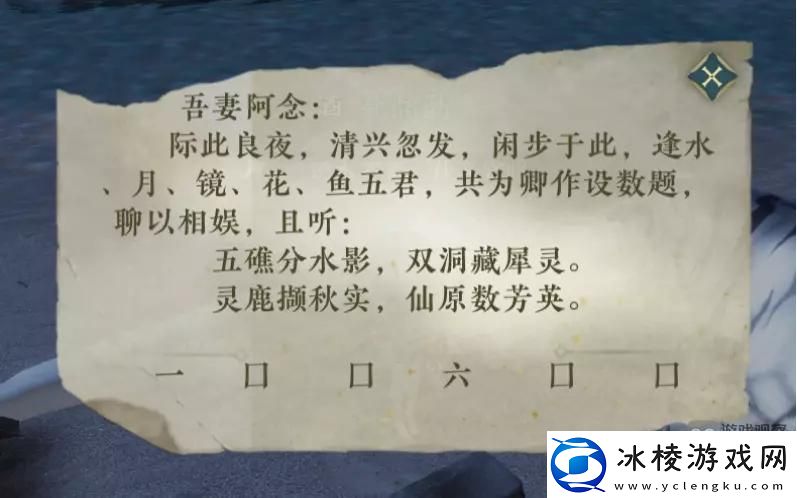 吾妻阿念：
际此良夜，清兴忽发，闲步于此，逢水
、月、镜、花、鱼五君，共为卿作设数题，
聊以相娱，且听：
五礁分水影，双洞藏犀灵。
灵鹿撷秋实，仙原数芳英。
一 囗 囗 六 囗 囗
冰棱游戏网
www.yclengku.com